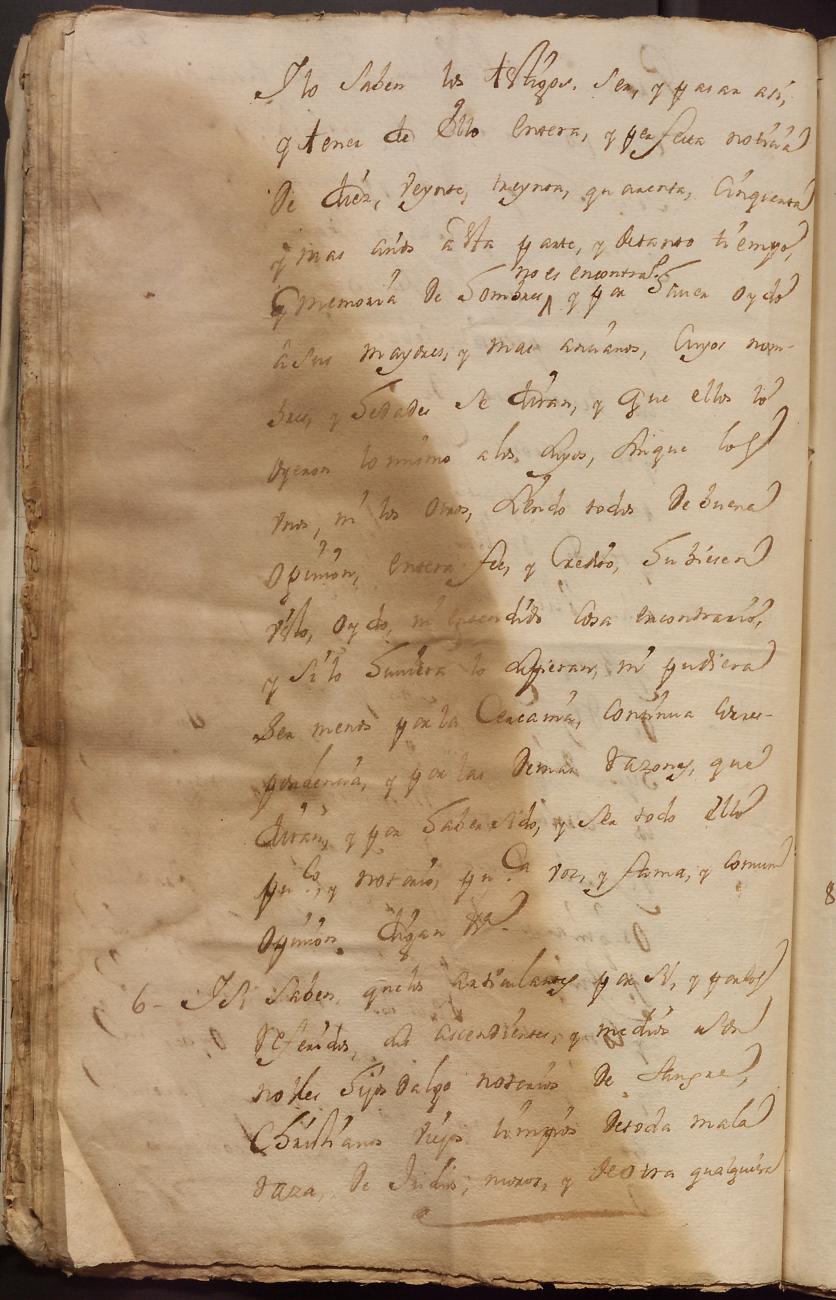 Ylo saben los testigos. ser, y pasar asi,
y tener de ello entera, y perfecta noticia
De diez, veynte, treynta, quarenta, Cinquenta
y mas años a esta parte, y detanto tiempo,
no es encontra.o
q memoria De Hombres y por Haver oydo
a sus mayores, y mas ancianos, Cuyos nom-
bres, y Hedades se diran, y que ellos lo
oyeron lo mismo a los suyos, sinque los
vnos, ni los otros, siendo todos De buena
opinion, entera fee, y Credito, Hubiesen
visto, oydo, ni entendido Cosa encontrario,
y si lo Huviera lo supieran, ni pudiera
Ser menos por la Cercania, Continua Corres-
pondencia, y por las Demas razones, que
diran, y por Haber sido, y ser todo ello
pu.co, y notorio, pu.ca voz, y fama, y Comun
opinion. digan &a.
6- Y Si Saben, que los articulantes por si, y por los
Referidos, sus ascendientes, y medios son
nobles Hijos dalgo notorios De Sangre,
Christianos viejos limpios Detoda mala
raza, De Judios, moros, y de otra qualquiera
8